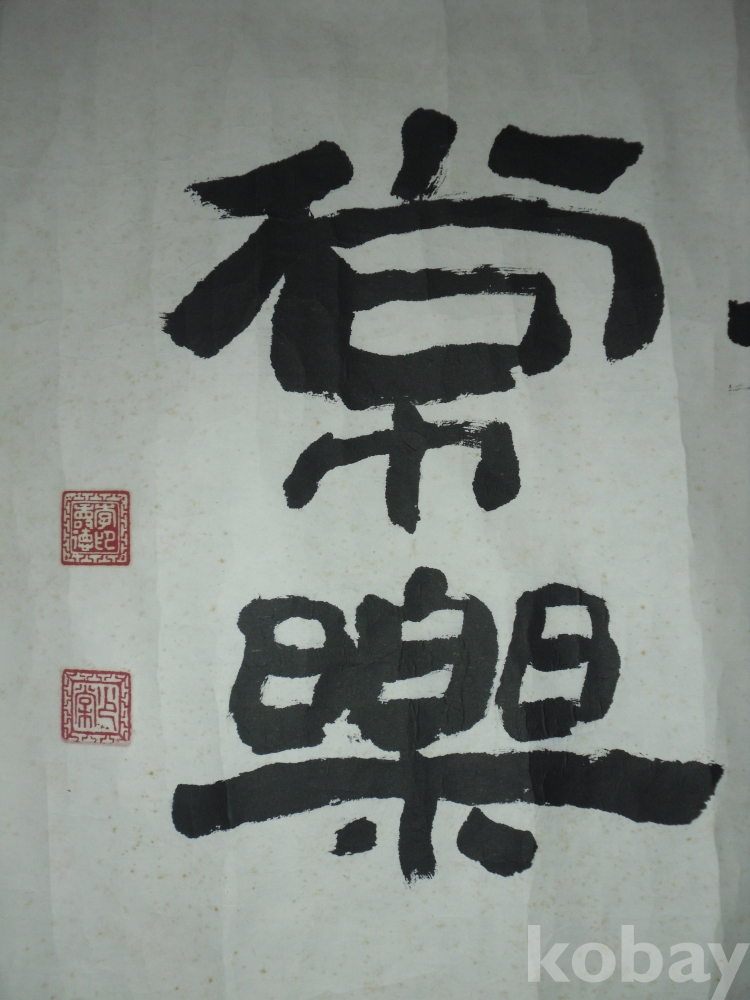 常樂
kobay